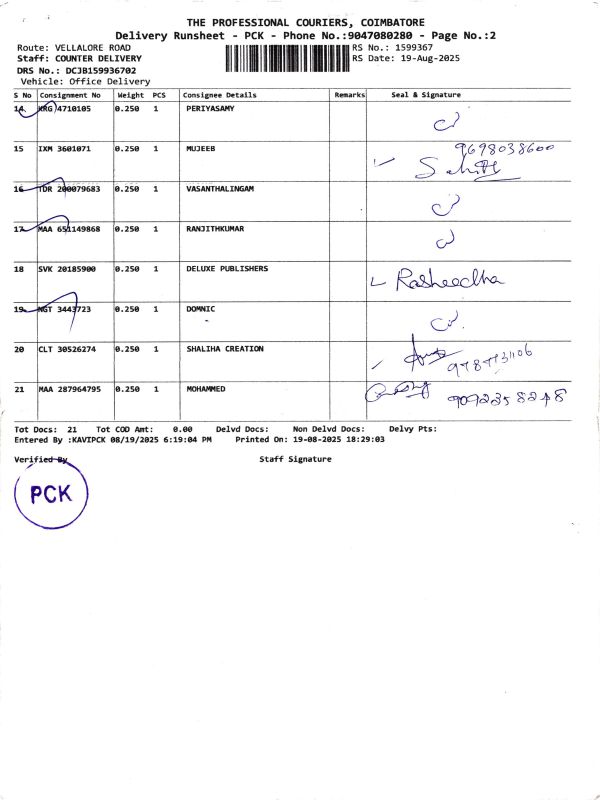 THE PROFESSIONAL COURIERS, COIMBATORE
Delivery Runsheet - PCK - Phone No.:9047080280 - Page No.:2
Route: VELLALORE ROAD RS No.: 1599367
Staff: COUNTER DELIVERY RS Date: 19-Aug-2025
DRS No.: DCJB159936702
Vehicle: Office Delivery
S No Consignment No Weight PCS Consignee Details Remarks Seal & Signature
14 KRG 4710105 0.250 1 PERIYASAMY
15 IXM 3601071 0.250 1 MUJEEB 9698038600
16 TDR 200079683 0.250 1 VASANTHALINGAM
17 MAA 651149868 0.250 1 RANJITHKUMAR
18 SVK 20185900 0.250 1 DELUXE PUBLISHERS Rasheedha
19 NGT 3443723 0.250 1 DOMNIC
20 CLT 30526274 0.250 1 SHALIHA CREATION
21 MAA 287964795 0.250 1 MOHAMMED
Tot Docs: 21 Tot COD Amt: 0.00 Delvd Docs: Non Delvd Docs: Delvy Pts:
Entered By :KAVIPCK 08/19/2025 6:19:04 PM Printed On: 19-08-2025 18:29:03
Verified By Staff Signature
PCK